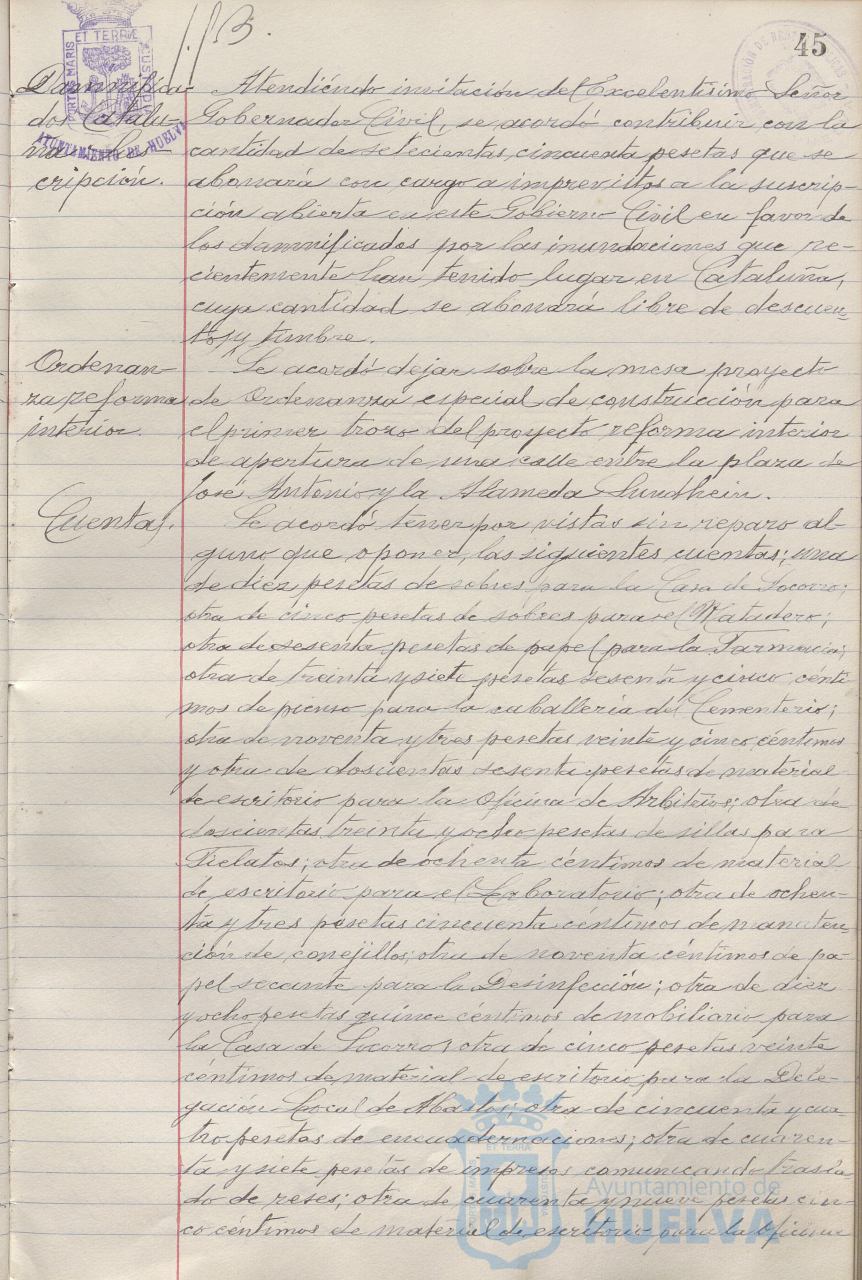 45
PORTUS MARIS ET TERRÆ CUSTODIA
AYUNTAMIENTO DE HUELVA
Damnifica-
dos Catalu-
ña
cripción.
Atendiendo invitación del Excelentisimo Señor
Gobernador Civil, se acordó contribuir con la
cantidad de setecientas cincuenta pesetas que se
abonará con cargo a imprevistos a la suscrip-
ción abierta en este Gobierno Civil en favor de
los damnificados por las inundaciones que re-
cientemente han tenido lugar en Cataluña,
cuya cantidad se abonará libre de descuen-
tos y timbre.
Ordenan-
za reforma
interior.
Se acordó dejar sobre la mesa proyecto
de Ordenanza especial de construcción para
el primer trozo del proyecto reforma interior
de apertura de una calle entre la plaza de
José Antonio y la Alameda Sundhein.
Cuentas.
Se acordó tener por vistas sin reparo al-
guno que oponer, las siguientes cuentas; una
de diez pesetas de sobres para la Casa de Socorro;
otra de cinco pesetas de sobres para el Matadero;
otra de sesenta pesetas de papel para la Farmacia;
otra de treinta y siete pesetas sesenta y cinco cénti
mos de pienso para la caballería del Cementerio;
otra de noventa y tres pesetas veinte y cinco céntimos
y otra de doscientas sesenta pesetas de material
de escritorio para la Oficina de Arbitrios; otra de
doscientas treinta y ocho pesetas de sillas para
Fielatos; otra de ochenta céntimos de material
de escritorio para el Laboratorio; otra de ochen-
ta y tres pesetas cincuenta céntimos de manuten-
ción de conejillos; otra de noventa céntimos de pa-
pel secante para la Desinfección; otra de diez
y ocho pesetas quince céntimos de mobiliario para
la Casa de Socorro; otra de cinco pesetas veinte
céntimos de material de escritorio para la Dele-
gación Local de Abastos; otra de cincuenta y cua-
tro pesetas de encuadernaciones; otra de cuaren-
ta y siete pesetas de impresos comunicando trasla-
do de reses; otra de cuarenta y nueve pesetas cin-
co céntimos de material de escritorio para la Oficina
Ayuntamiento de
HUELVA